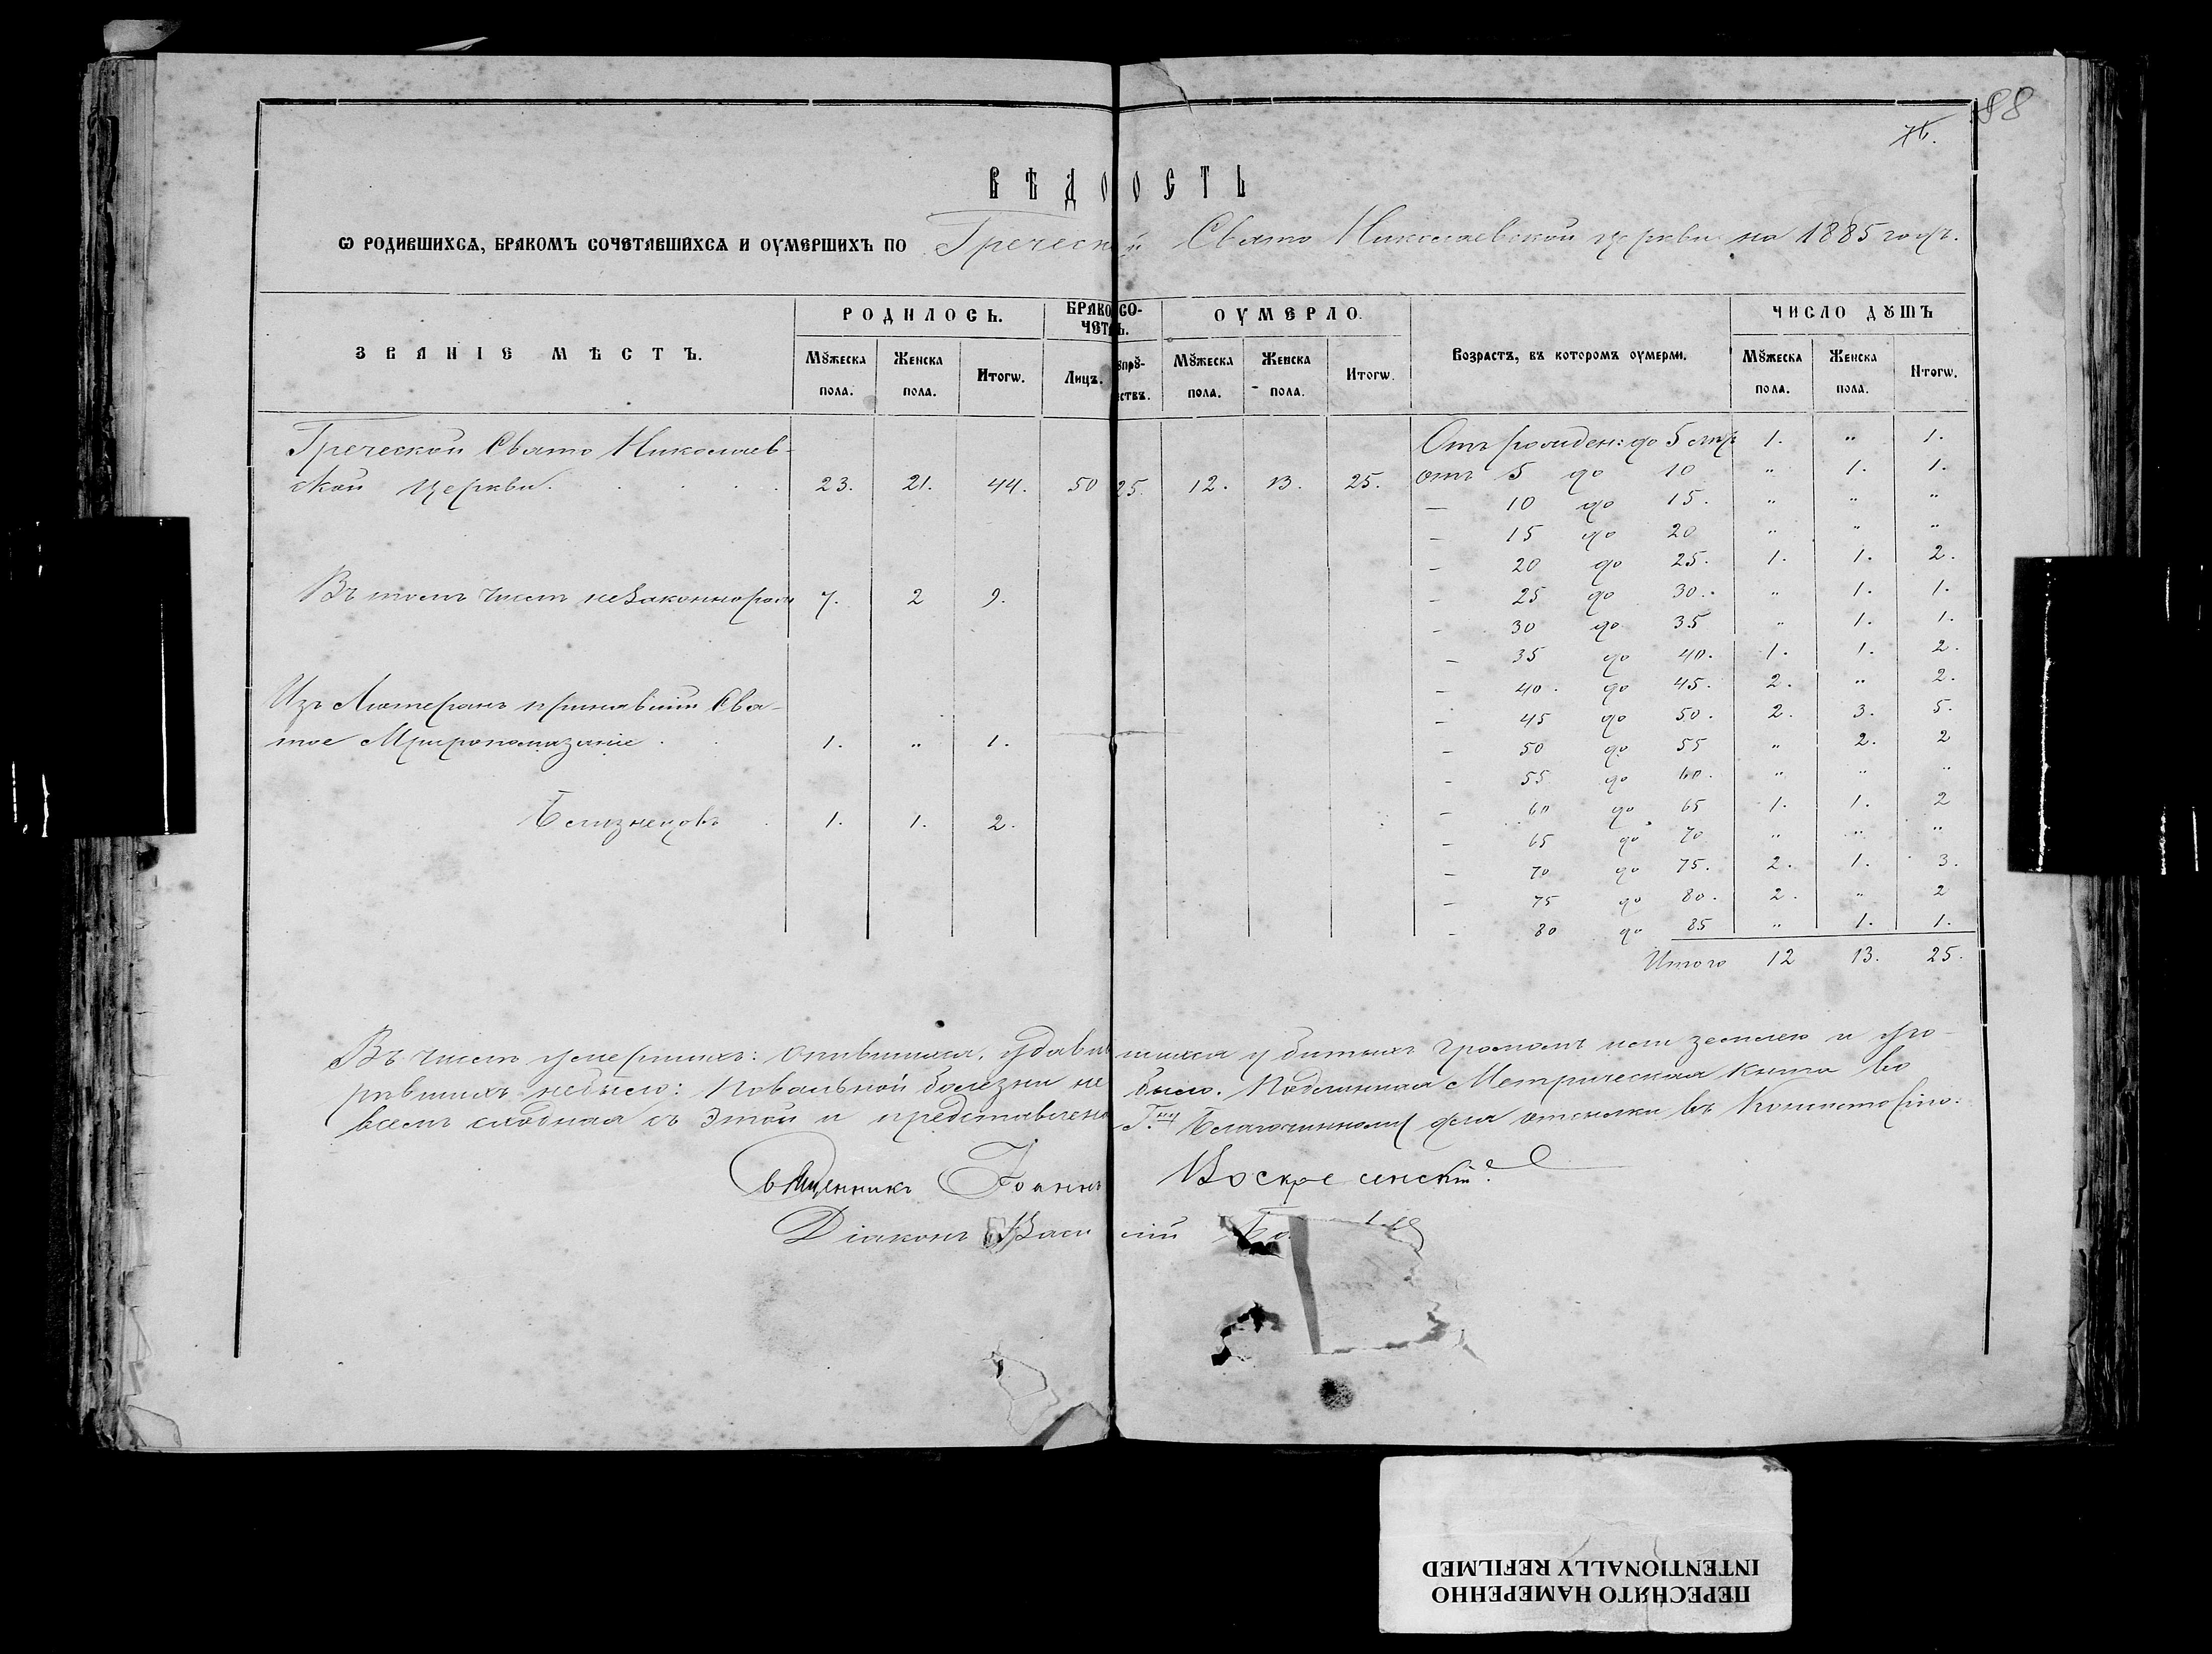 88
76.
ВѢДО ОСТЬ
Ѡ РОДИВШИХСѦ, БРАКОМЪ СОЧЕТАВШИХСѦ И ОУМЕРШИХЪ ПО Греческой Свято Николаевской церкви на 1885 годъ.
ЗВАНІЕ МѢСТЪ. РОДИЛОСЬ. БРАКОСО- ОУМЕРЛО. Возрастъ, въ которомъ оумерли. ЧИСЛО ДꙊШЪ
ЧЕТА Ъ.
Мꙋжеска Женска Итогѡ. Лицъ. Мꙋжеска Женска Итогѡ. Мꙋжеска Женска Итогѡ.
пола. пола. ствъ. пола. пола. пола. пола.
Греческой Свято Николаев-
ской церкви. 23. 21. 44. 50 25. 12. 13. 25.
Въ томъ числѣ незаконнорож 7. 2 9.
Изъ Лютеранъ принявшій Свя-
тое Мѵропомазаніе 1. " 1.
Близнецовъ 1. 1. 2.
Отъ рожден: до 5 лѣтъ 1. " 1.
отъ 5 до 10 " 1. 1.
— 10 до 15. " " "
— 15 до 20 " " "
— 20 до 25. 1. 1. 2.
— 25 до 30. " 1. 1.
— 30 до 35 " 1. 1.
— 35 до 40. 1. 1. 2.
— 40. до 45. 2. " 2.
— 45 до 50. 2. 3. 5.
— 50 до 55 " 2. 2
— 55 до 60. " " "
— 60 до 65 1. 1. 2
— 65 до 70 " " "
— 70 до 75. 2. 1. 3.
— 75 до 80. 2. " 2
— 80 до 85 " 1. 1.
Итого 12 13. 25.
Въ числѣ умершихъ: опившихся, удавившихся убитыхъ громомъ или землею и уго-
рѣвшихъ небыло: Повальной болезни не было. Подлинная Метрическая книга во
всемъ сходная съ этой и представлена Г.ну Благочинному для отсылки въ Консисторію.
Священникъ Іоаннъ Воскресенскій
Діаконъ Василій
ПЕРЕСНЯТО НАМЕРЕННО
INTENTIONALLY REFILMED